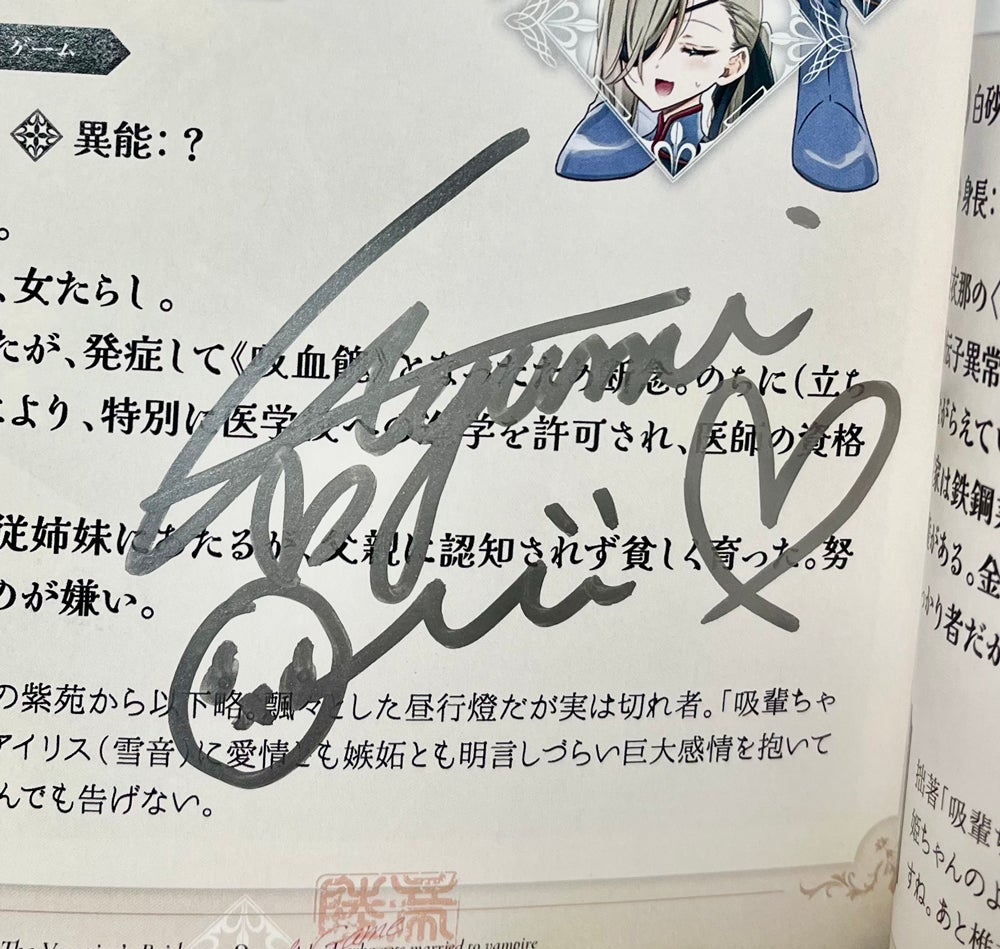 ゲーム
異能：?
。
、女たらし。
たが、発症して《吸血餽》となったため断念。のちに（立ち
により、特別に医学校への進学を許可され、医師の資格
従姉妹にあたるが、父親に認知されず貧しく育った。努
のが嫌い。
の紫苑から以下略。飄々とした昼行燈だが実は切れ者。「吸輩ちゃ
アイリス（雪音）に愛情とも嫉妬とも明言しづらい巨大感情を抱いて
んでも告げない。
married to vampire
白砂
身長：
衣那の《
伝子異常
がらえてい
家は鉄鋼業
がある。金
かり者だか
拙著「吸輩
姫ちゃんのよ
すね。あと椎